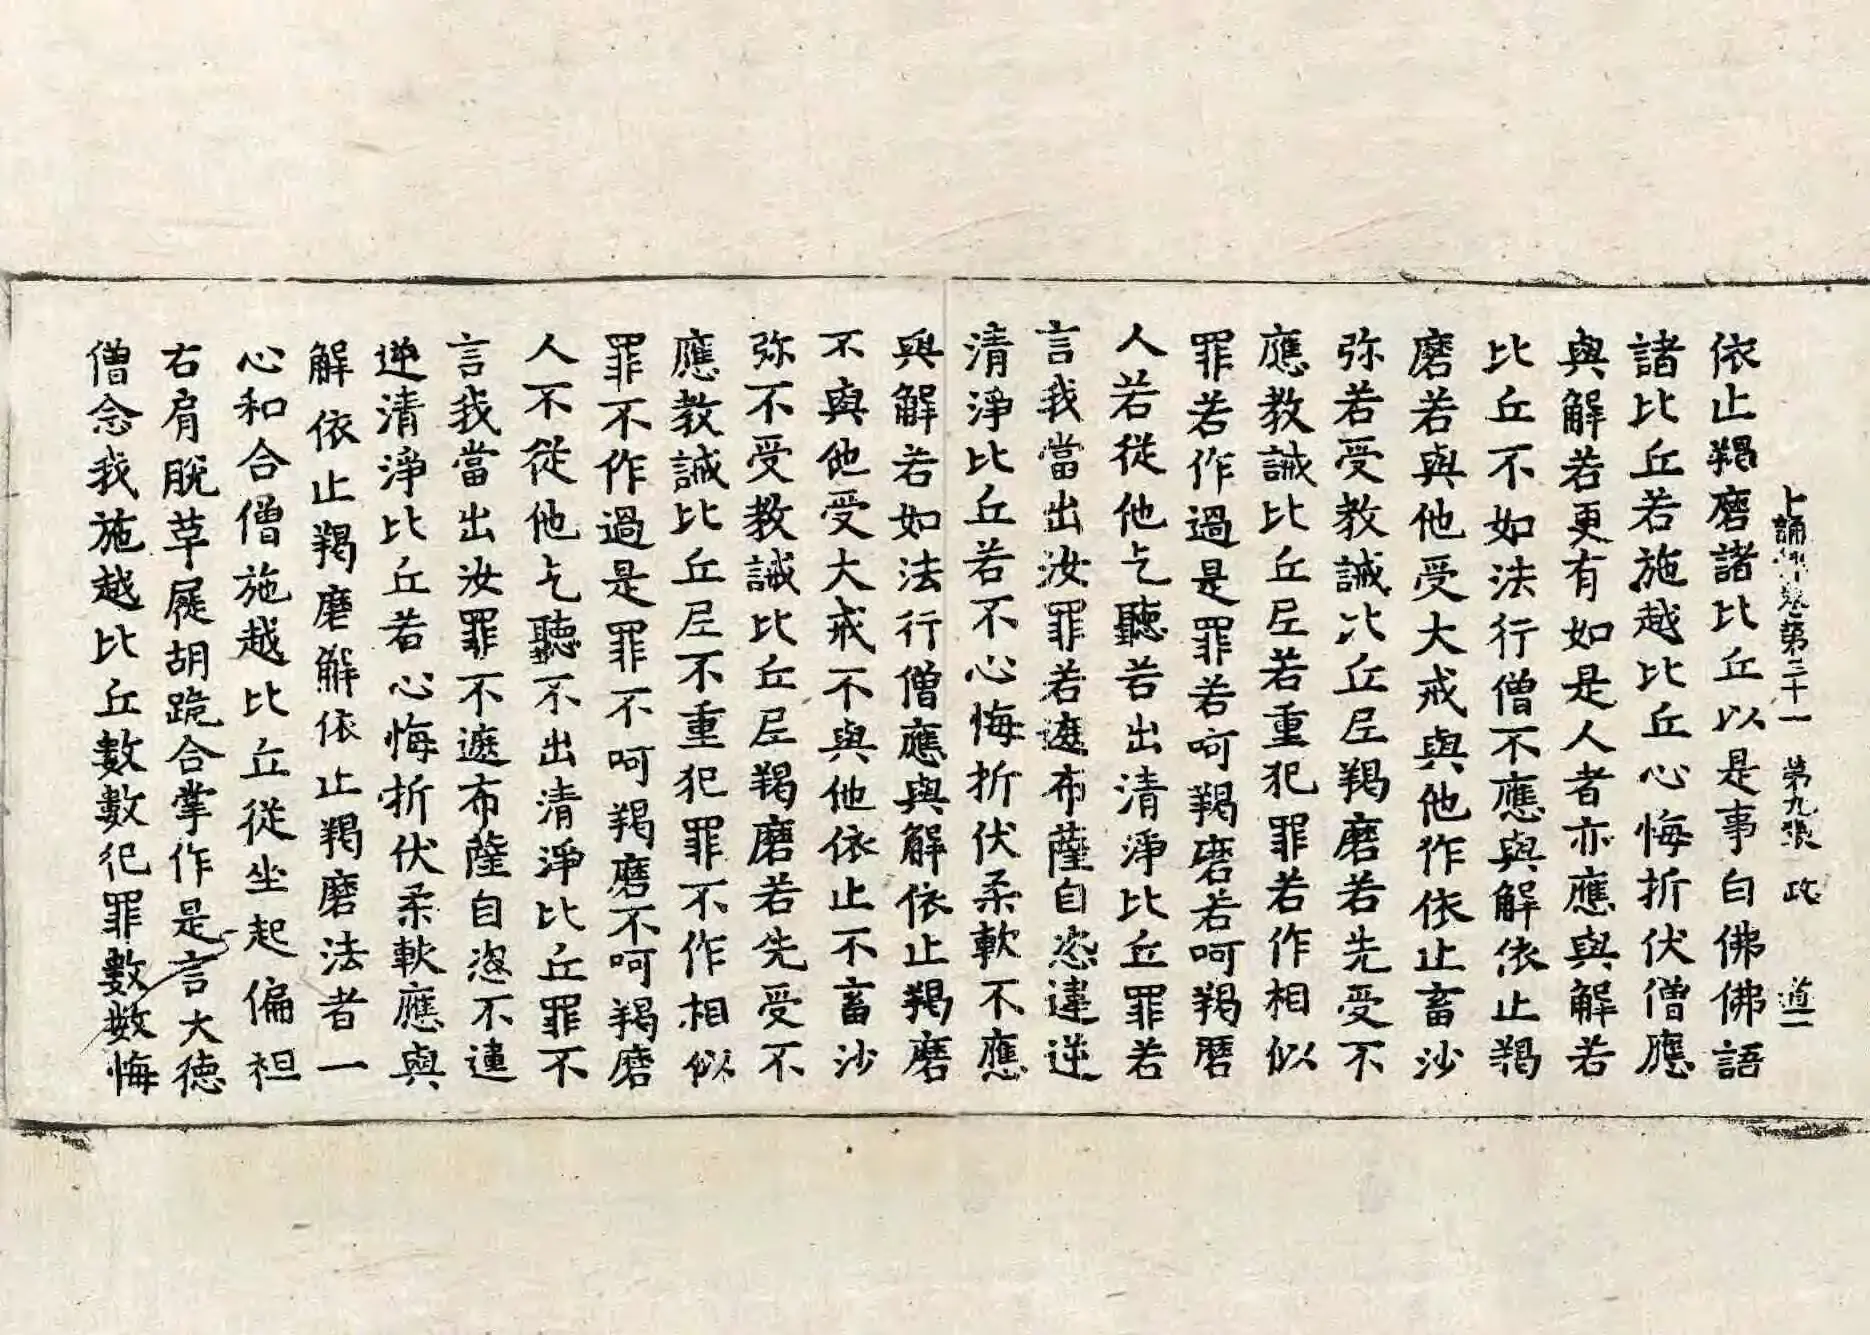 十誦律卷第三十一　第九張　政　道二
依止羯磨諸比丘以是事白佛佛語
諸比丘若施越比丘心悔折伏僧應
與解若更有如是人者亦應與解若
比丘不如法行僧不應與解依止羯
磨若與他受大戒與他作依止畜沙
弥若受教誡比丘尼羯磨若先受不
應教誡比丘尼若重犯罪若作相似
罪若作過是罪若呵羯磨若呵羯磨
人若從他乞聽若出清淨比丘罪若
言我當出汝罪若遮布薩自恣違逆
清淨比丘若不心悔折伏柔軟不應
與解若如法行僧應與解依止羯磨
不與他受大戒不與他依止不畜沙
弥不受教誡比丘尼羯磨若先受不
應教誡比丘尼不重犯罪不作相似
罪不作過是罪不呵羯磨不呵羯磨
人不從他乞聽不出清淨比丘罪不
言我當出汝罪不遮布薩自恣不違
逆清淨比丘若心悔折伏柔軟應與
解依止羯磨解依止羯磨法者一
心和合僧施越比丘從坐起偏袒
右肩脫草屣胡跪合掌作是言大德
僧念我施越比丘數數犯罪數數悔